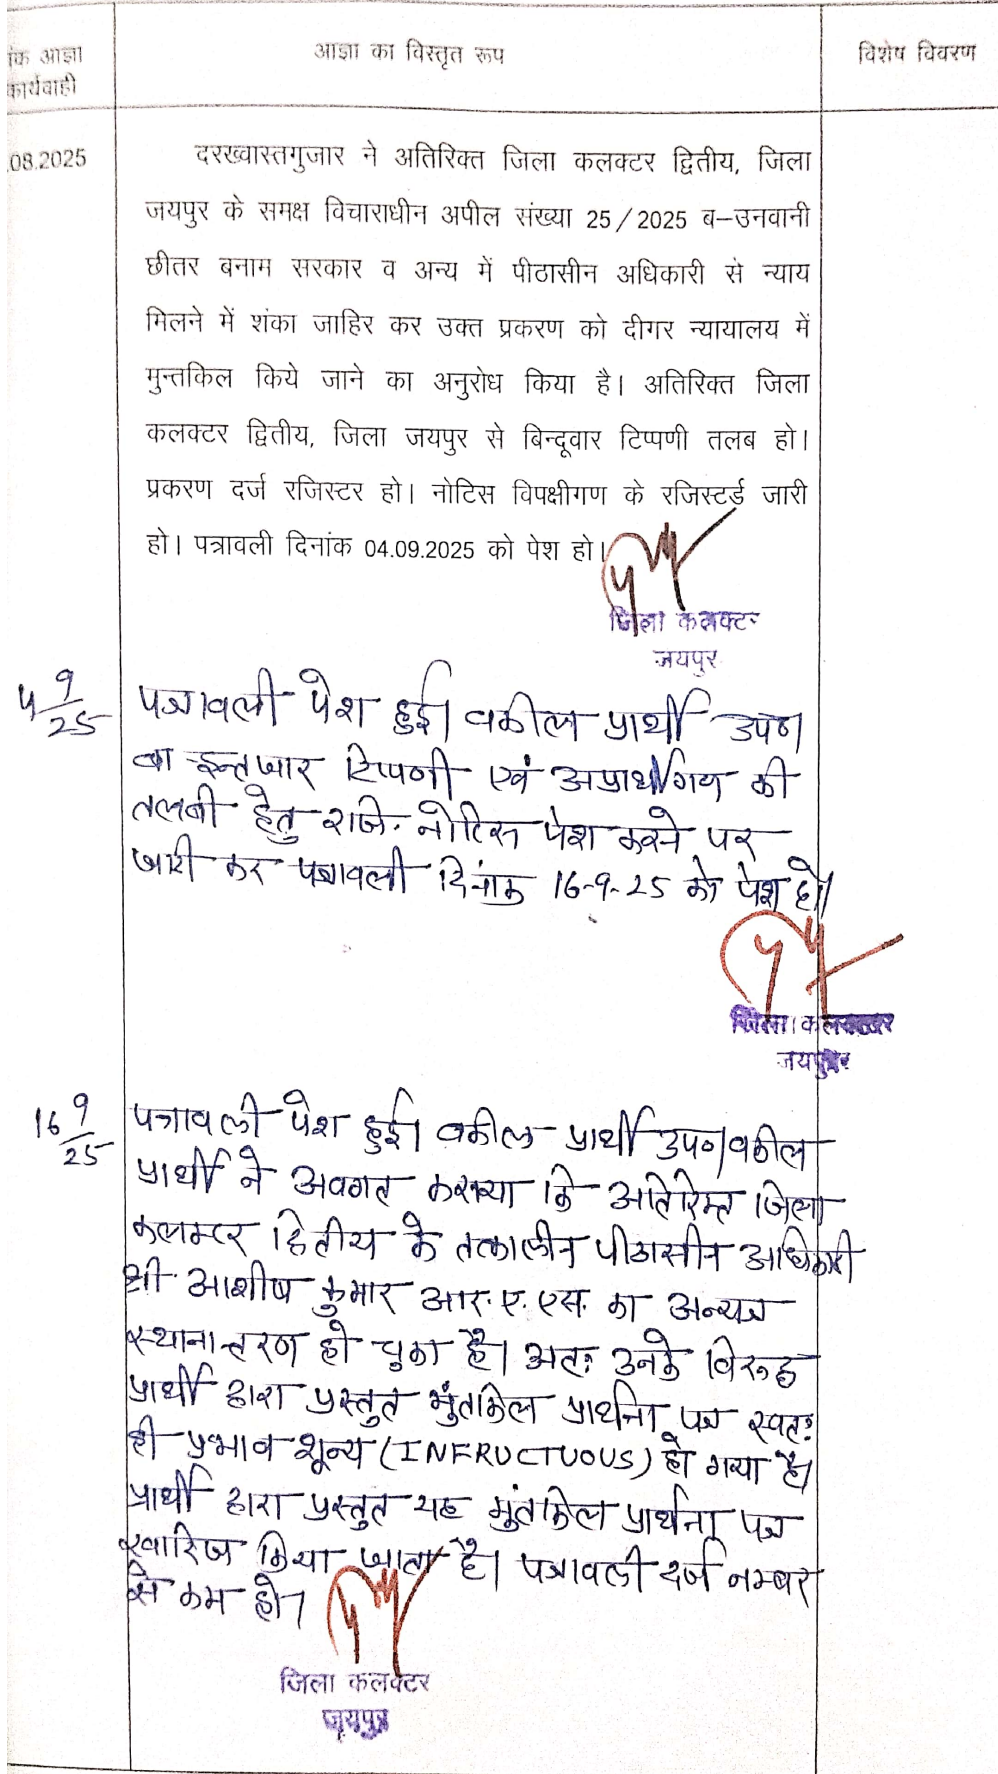 ंक आज्ञा
कार्यवाही
आज्ञा का विस्तृत रूप
विशेष विवरण
.08.2025
दरख्वास्तगुजार ने अतिरिक्त जिला कलक्टर द्वितीय, जिला
जयपुर के समक्ष विचाराधीन अपील संख्या 25/2025 ब-उनवानी
छीतर बनाम सरकार व अन्य में पीठासीन अधिकारी से न्याय
मिलने में शंका जाहिर कर उक्त प्रकरण को दीगर न्यायालय में
मुन्तकिल किये जाने का अनुरोध किया है। अतिरिक्त जिला
कलक्टर द्वितीय, जिला जयपुर से बिन्दूवार टिप्पणी तलब हो।
प्रकरण दर्ज रजिस्टर हो। नोटिस विपक्षीगण के रजिस्टर्ड जारी
हो। पत्रावली दिनांक 04.09.2025 को पेश हो।
जिला कलक्टर
जयपुर
4 9/25
पत्रावली पेश हुई। वकील प्रार्थी उप०।
वा इन्तजार टिप्पणी एवं अप्रार्थीगण की
तलबी हेतु रजि. नोटिस पेश करने पर
जारी कर पत्रावली दिनांक 16-9-25 को पेश हो।
जिला कलक्टर
जयपुर
16 9/25
पत्रावली पेश हुई। वकील प्रार्थी उप०। वकील
प्रार्थी ने अवगत कराया कि अतिरिक्त जिला
कलक्टर द्वितीय के तत्कालीन पीठासीन अधिकारी
श्री आशीष कुमार आर.ए.एस. का अन्यत्र
स्थानान्तरण हो चुका है। अतः उनके विरुद्ध
प्रार्थी द्वारा प्रस्तुत मुंतकिल प्रार्थना पत्र स्वतः
ही प्रभाव शून्य (INFRUCTUOUS) हो गया है।
प्रार्थी द्वारा प्रस्तुत यह मुंतकिल प्रार्थना पत्र
खारिज किया जाता है। पत्रावली दर्ज नम्बर
से कम हो।
जिला कलक्टर
जयपुर